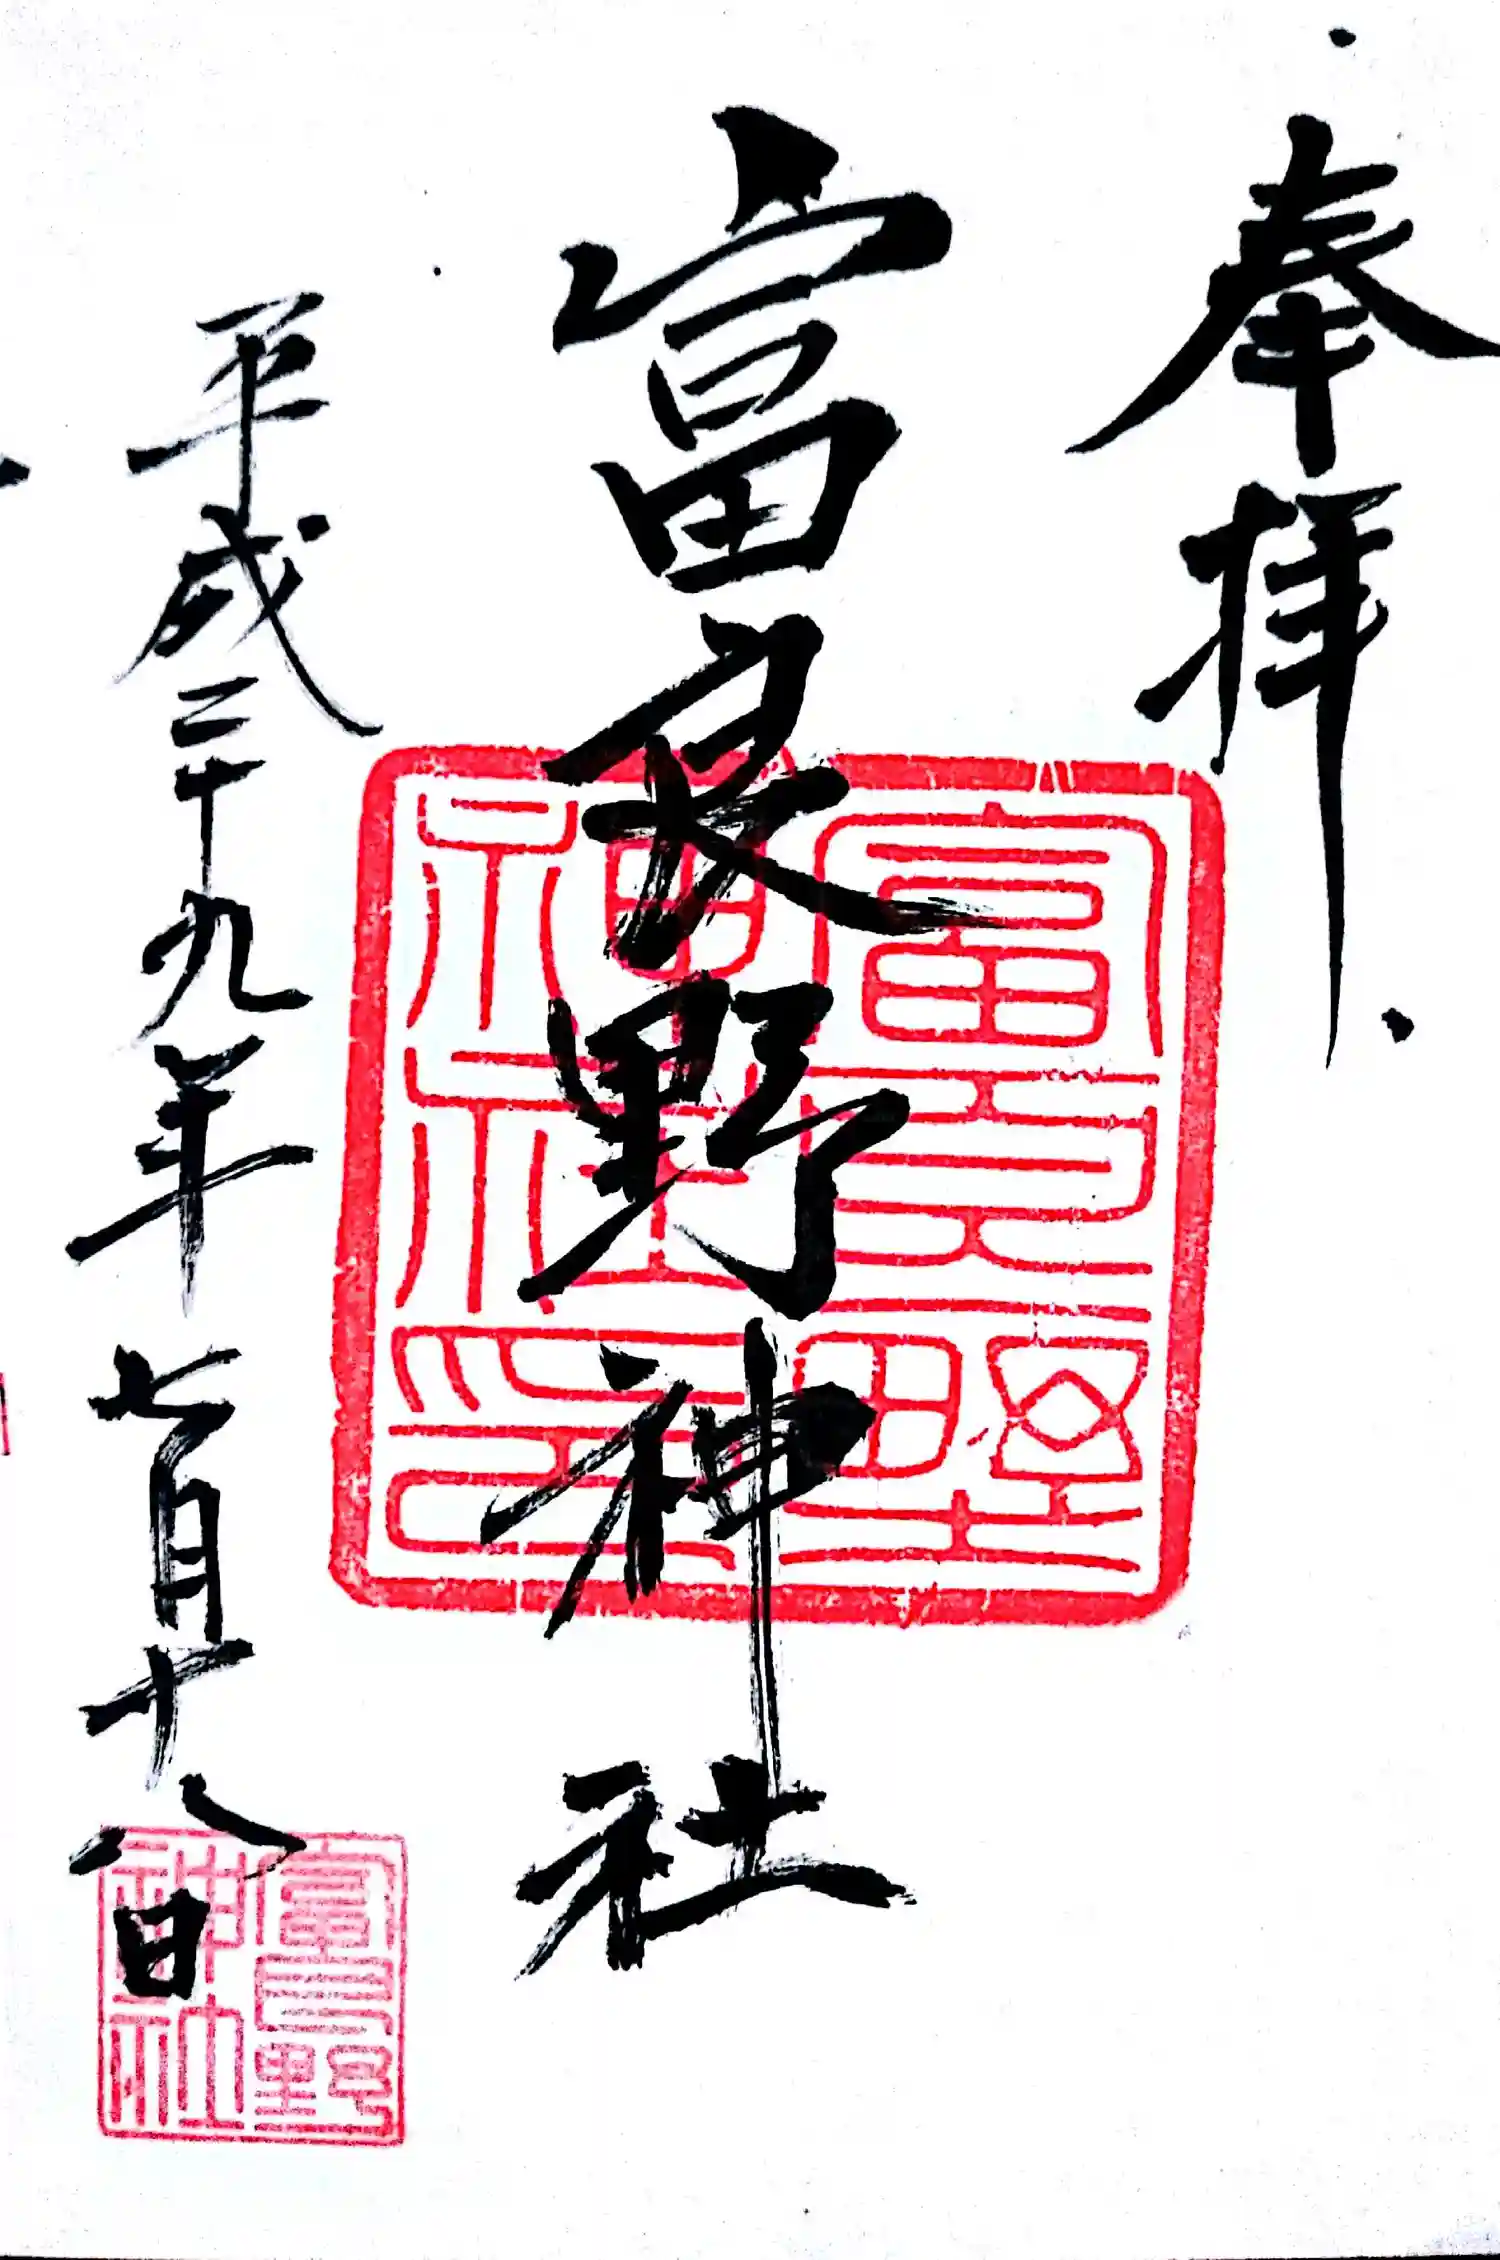 奉拝
富良野神社
平成二十九年七月十八日
富良野
神社印
富良野
神社